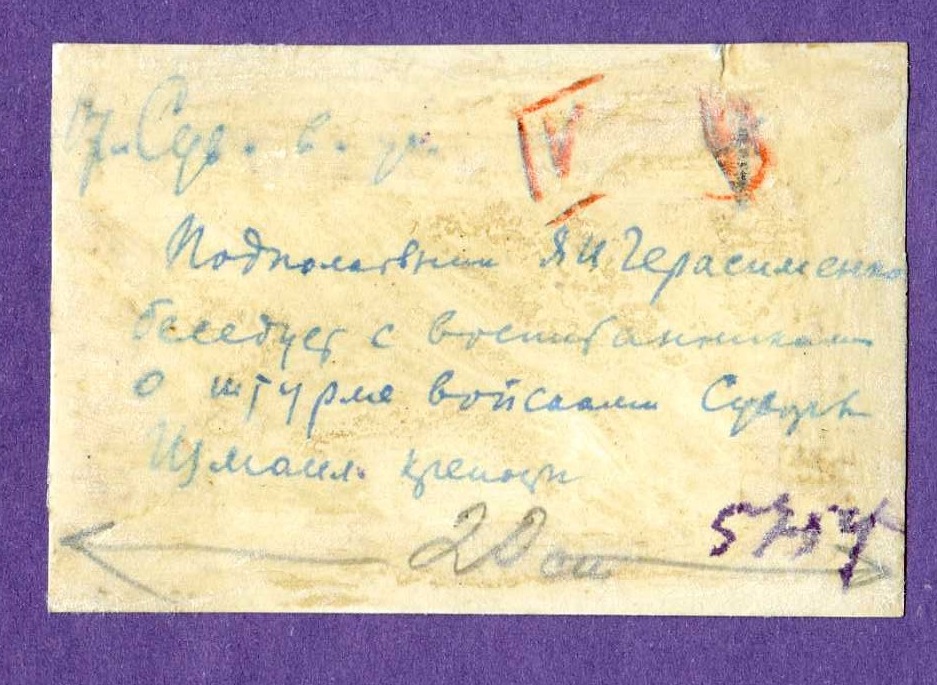 Сув. в. уч.
IV
Подполковник Я И Герасименко
беседует с воспитанниками
о штурме войсками Суворова
Измаил. крепости
20 см
5754